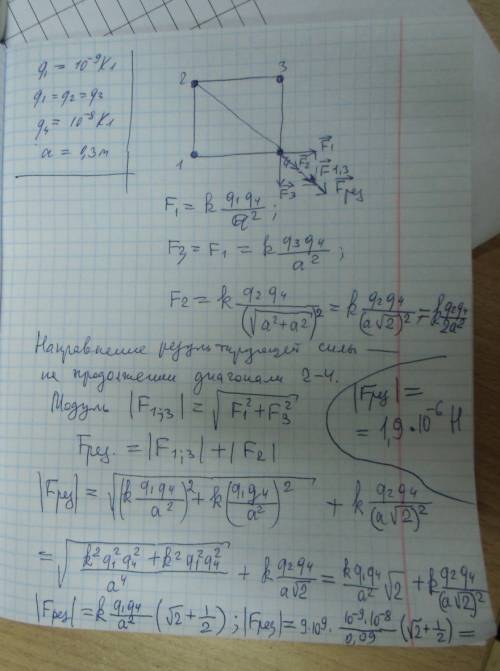 q₁ = 10⁻⁹ Кл
q₁ = q₂ = q₃
q₄ = 10⁻⁸ Кл
a = 0,3 м
2 3
1 F⃗₁
F⃗₂ F⃗1,3
F⃗₃ F⃗рез
F₁ = k q₁q₄/a² ;
F₃ = F₁ = k q₃q₄/a² ;
F₂ = k q₂q₄/(√(a²+a²))² = k q₂q₄/(a√2)² = k q₂q₄/2a²
Направление результирующей силы —
на продолжении диагонали 2-4.
Модуль |F₁;₃| = √(F₁² + F₃²)
Fрез. = |F₁;₃| + |F₂|
|Fрез| =
= 1,9·10⁻⁶ Н
|Fрез| = √((k q₁q₄/a²)² + k(q₁q₄/a²)²) + k q₂q₄/(a√2)²
= √((k²q₁²q₄² + k²q₁²q₄²)/a⁴) + k q₂q₄/a√2 = kq₁q₄/a² √2 + k q₂q₄/(a√2)²
|Fрез| = k q₁q₄/a² (√2 + 1/2) ; |Fрез| = 9·10⁹· 10⁻⁹·10⁻⁸/0,09 (√2 + 1/2) =